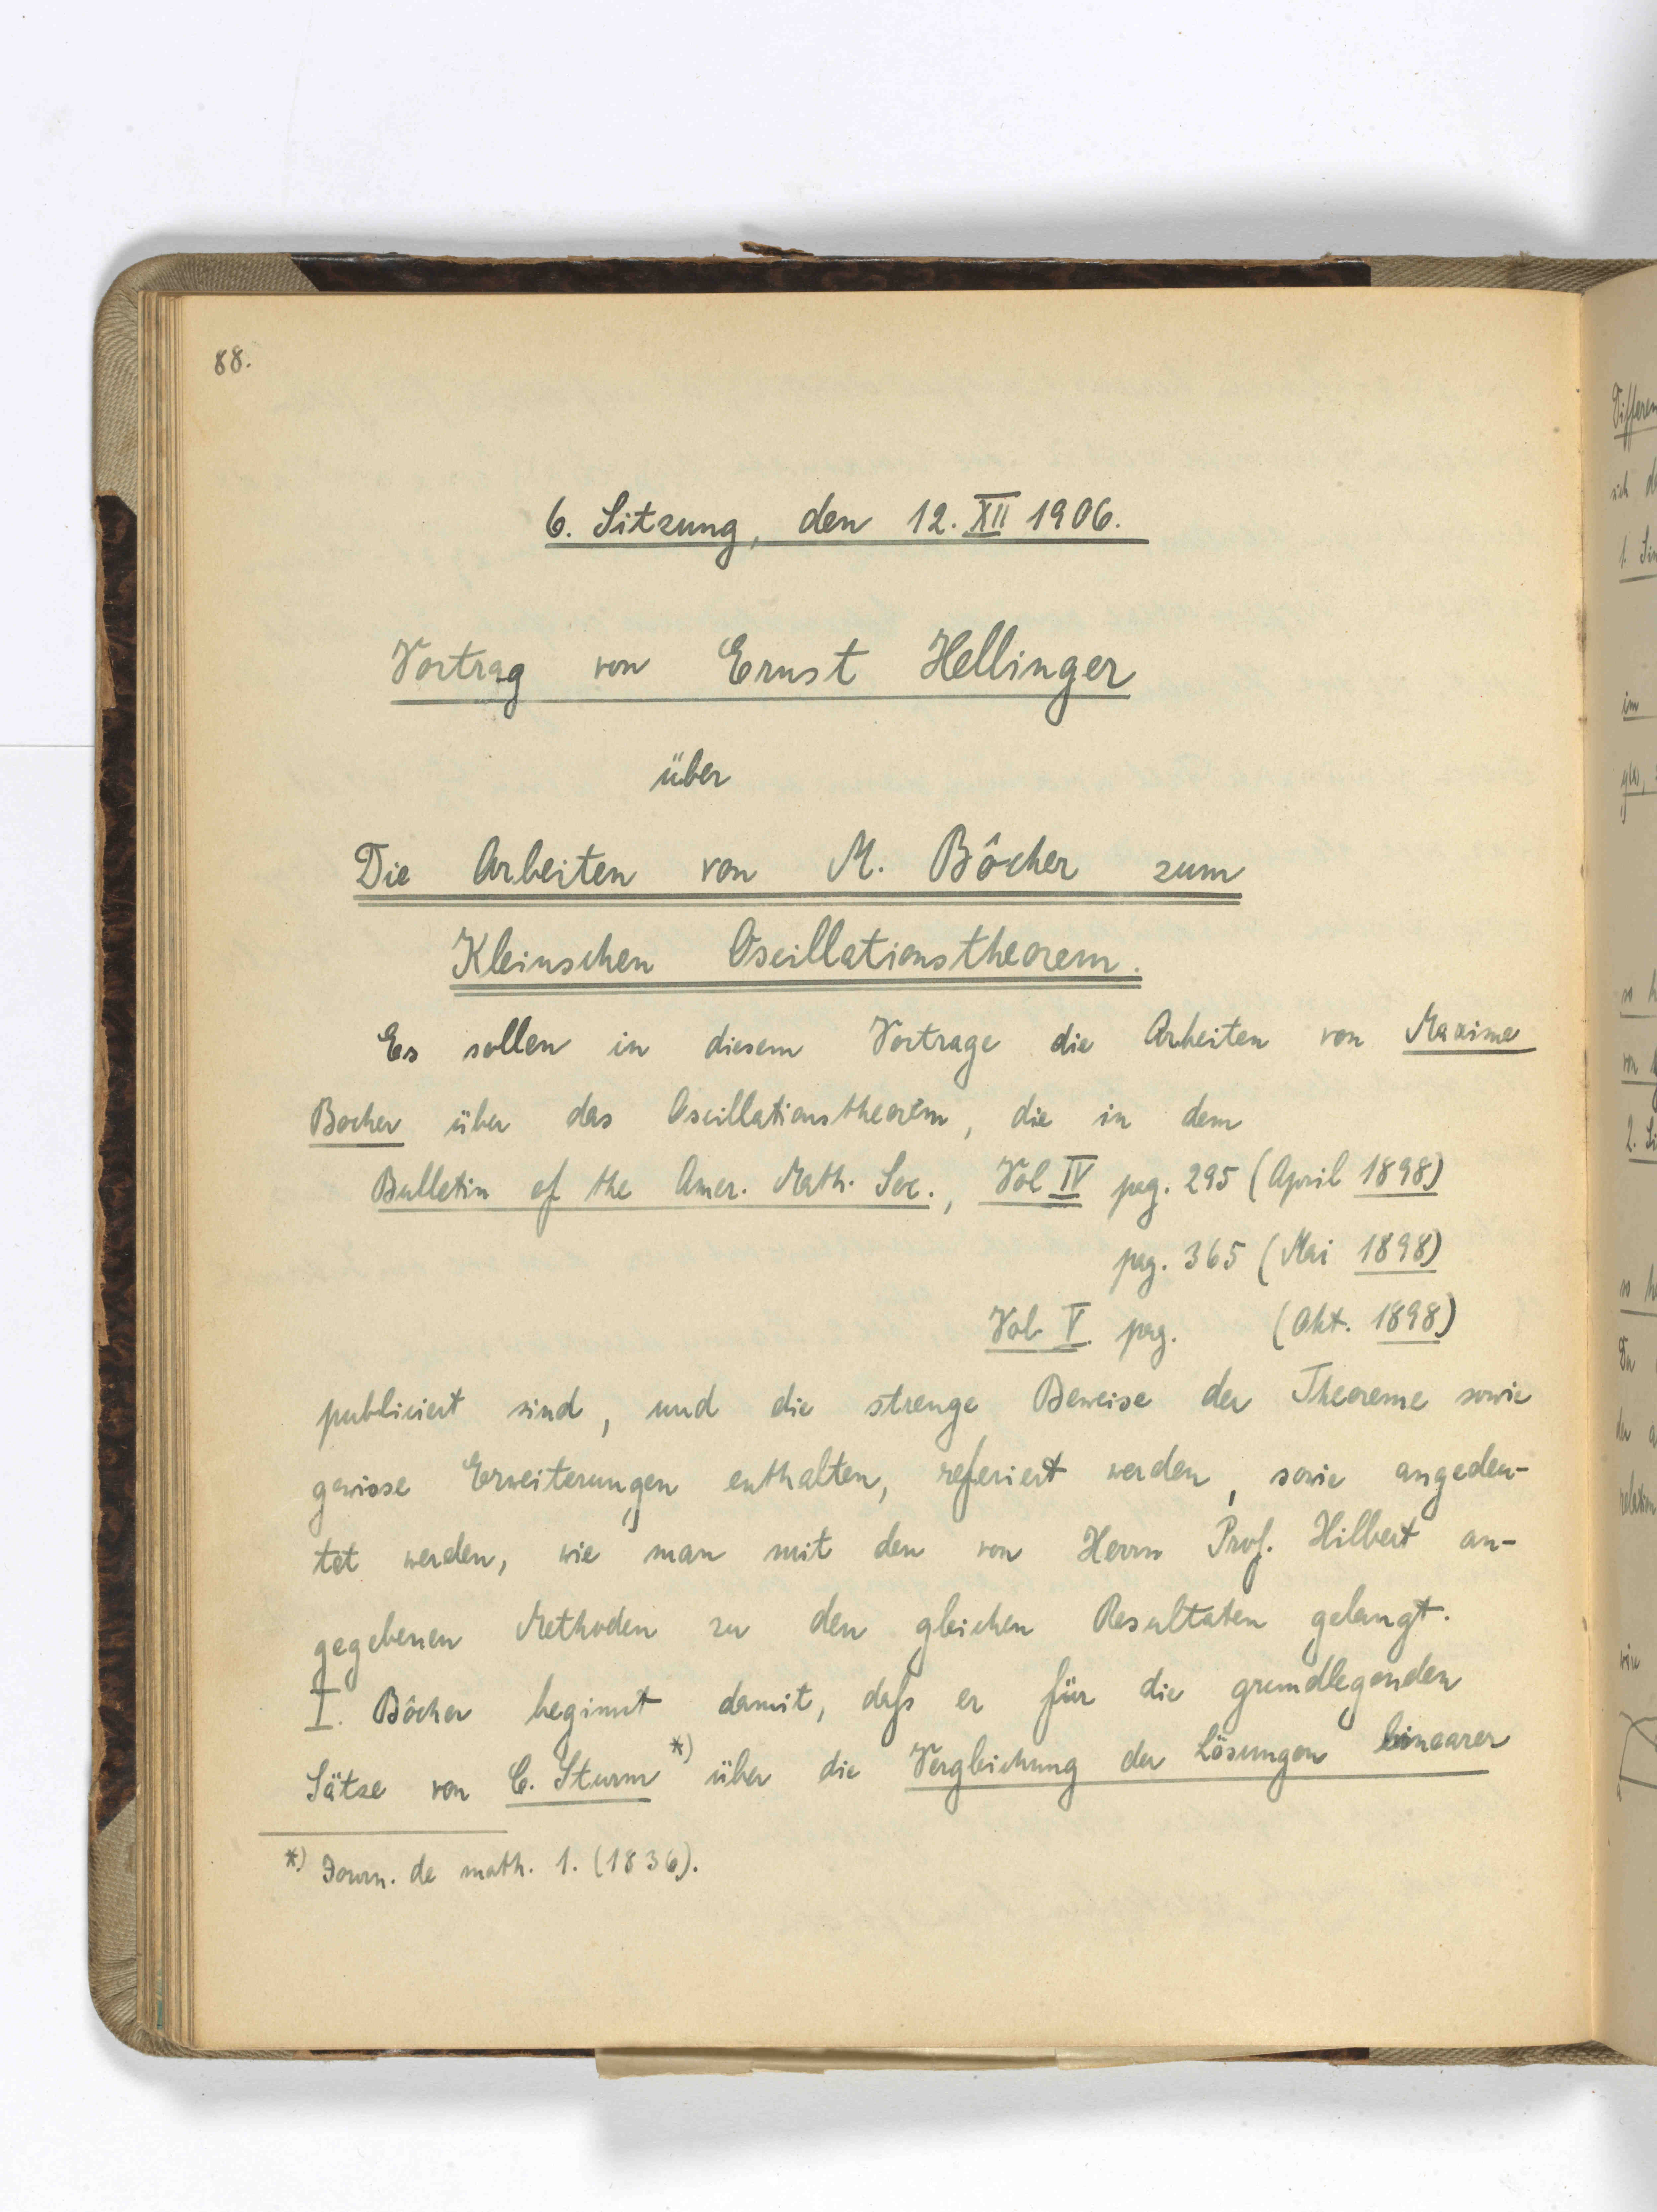 88.
6. Sitzung, den 12. XII 1906.
Vortrag von Ernst Hellinger
über
Die Arbeiten von M. Bôcher zum
Kleinschen Oscillationstheorem.
Es sollen in diesem Vortrage die Arbeiten von Maxime
Bocher über das Oscillationstheorem, die in dem
Bulletin of the Amer. Math. Soc., Vol IV pag. 295 (April 1898)
pag. 365 (Mai 1898)
Vol V. pag. (Okt. 1898)
publiciert sind, und die strenge Beweise der Theoreme sowie
gewisse Erweiterungen enthalten, referiert werden, sowie angedeu-
tet werden, wie man mit den von Herrn Prof. Hilbert an-
gegebenen Methoden zu den gleichen Resultaten gelangt.
I. Bôcher beginnt damit, daß er für die grundlegenden
Sätze von C. Sturm *) über die Vergleichung der Lösungen linearer
*) Journ. de math. 1. (1836).
Differen
sich
1.
im
so h
von
2.
so h
Da
der
relation
wie